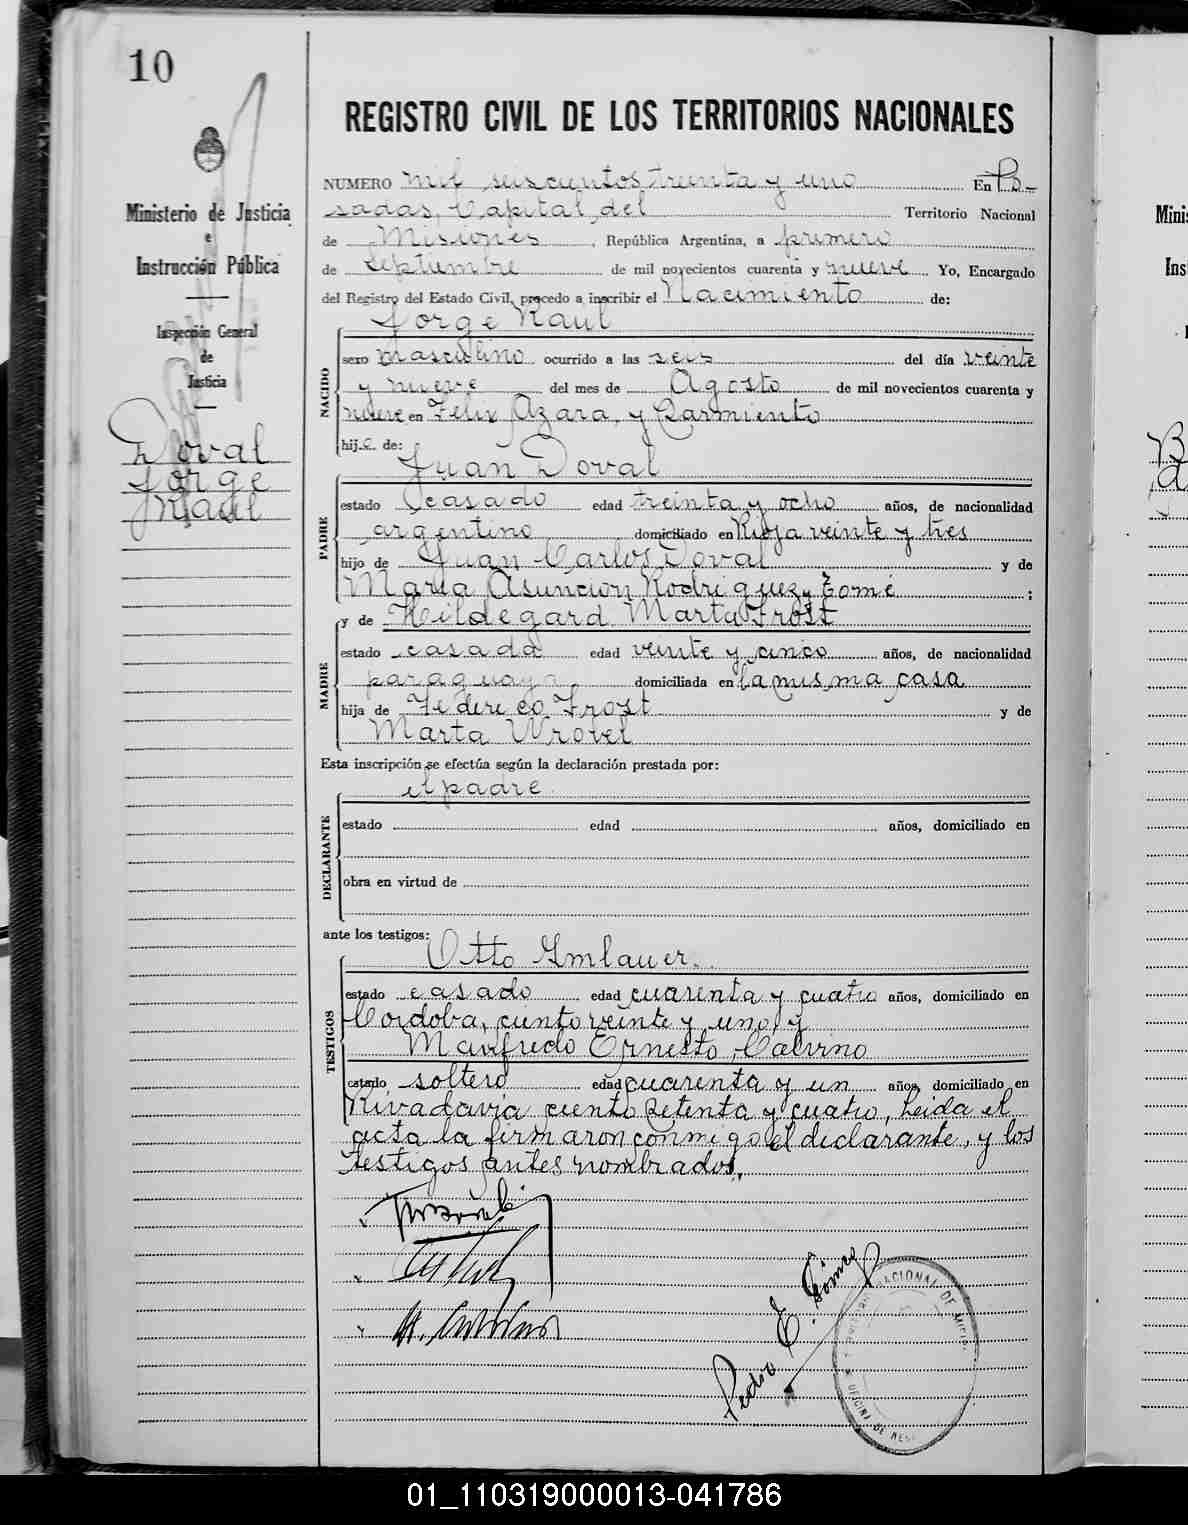 10
REGISTRO CIVIL DE LOS TERRITORIOS NACIONALES
Ministerio de Justicia
e
Instrucción Pública
Inspección General
de
Justicia
Doval
Jorge
Raul
NUMERO mil seiscientos treinta y uno En Po-
sadas, Capital del Territorio Nacional
de Misiones, República Argentina, a primero
de Septiembre de mil novecientos cuarenta y nueve Yo, Encargado
del Registro del Estado Civil, procedo a inscribir el Nacimiento de:
Jorge Raul
NACIDO
sexo masculino ocurrido a las seis del día veinte
y nueve del mes de Agosto de mil novecientos cuarenta y
nueve en Félix Azara, y Sarmiento
hijo de:
Juan Doval
PADRE
estado casado edad treinta y ocho años, de nacionalidad
argentino domiciliado en Rioja veinte y tres
hijo de Juan Carlos Doval y de
Maria Asuncion Rodriguez y Tomé;
y de Hildegard Marta Frost
MADRE
estado casada edad veinte y cinco años, de nacionalidad
paraguaya domiciliada en la misma casa
hija de Federico Frost y de
Marta Wrobel
Esta inscripción se efectúa según la declaración prestada por:
el padre
DECLARANTE
estado edad años, domiciliado en
obra en virtud de
ante los testigos:
Otto Gmlauer.
TESTIGOS
estado casado edad cuarenta y cuatro años, domiciliado en
Cordoba, ciento veinte y uno, y
Manfredo Ernesto Calvino
estado soltero edad cuarenta y un años, domiciliado en
Rivadavia ciento setenta y cuatro, Leida el
acta la firmaron conmigo el declarante, y los
testigos antes nombrados.
Pedro E. Gómez
NACIONAL DE MISI
OFICINA DE
Minis
Ins
01_110319000013-041786